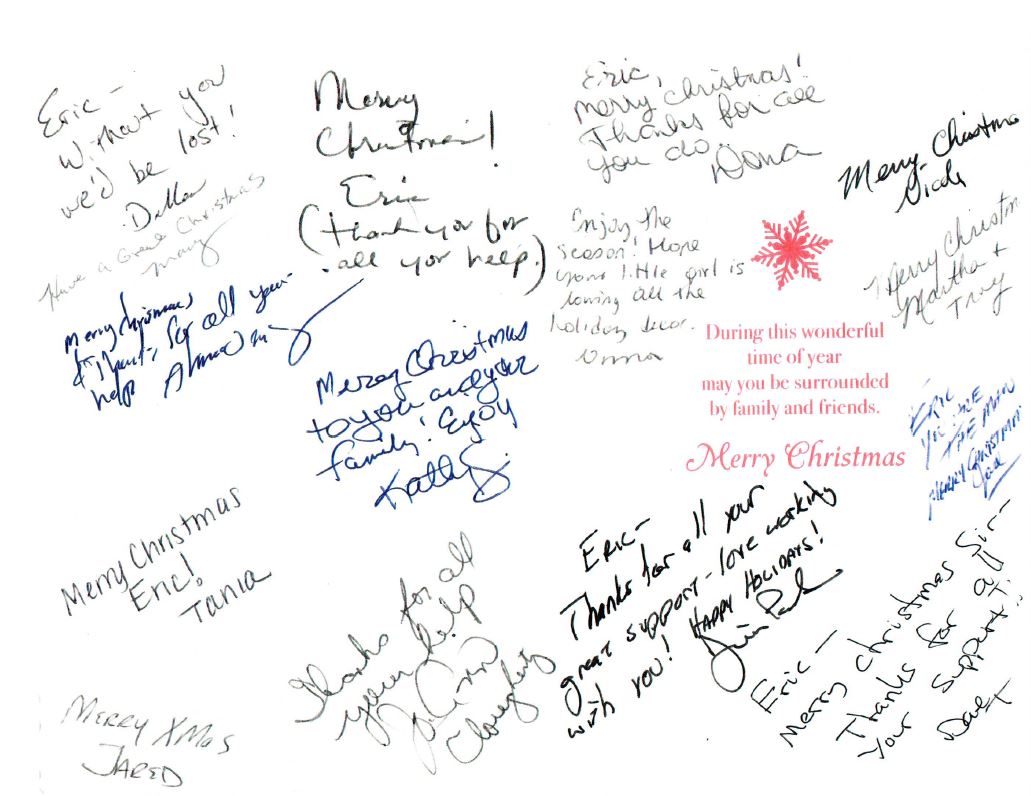 Eric -
Without you
we'd be lost!
Have a Great Christmas
Mary
Merry Christmas
& Thanks for all your
help
Merry
Christmas!
Eric
(thank you for
all your help.)
Merry Christmas
to you and your
family! Enjoy
Kathy S.
Eric,
Merry Christmas!
Thanks for all
you do.
Dona
Enjoy the
season! Hope
your little girl is
loving all the
holiday decor.
Merry Christma
Merry Christm
Martha +
Troy
During this wonderful
time of year
may you be surrounded
by family and friends.
Merry Christmas
ERIC
YOU ARE
THE MAN
MERRY CHRISTMAS
Merry Christmas
Eric!
Tania
MERRY XMAS
JARED
Thanks for all
your help
Jo Ann
ERIC-
Thanks for all your
great support - love working
with you! HAPPY HOLIDAYS!
Eric -
Merry Christmas Sir-
Thanks for all
your support!